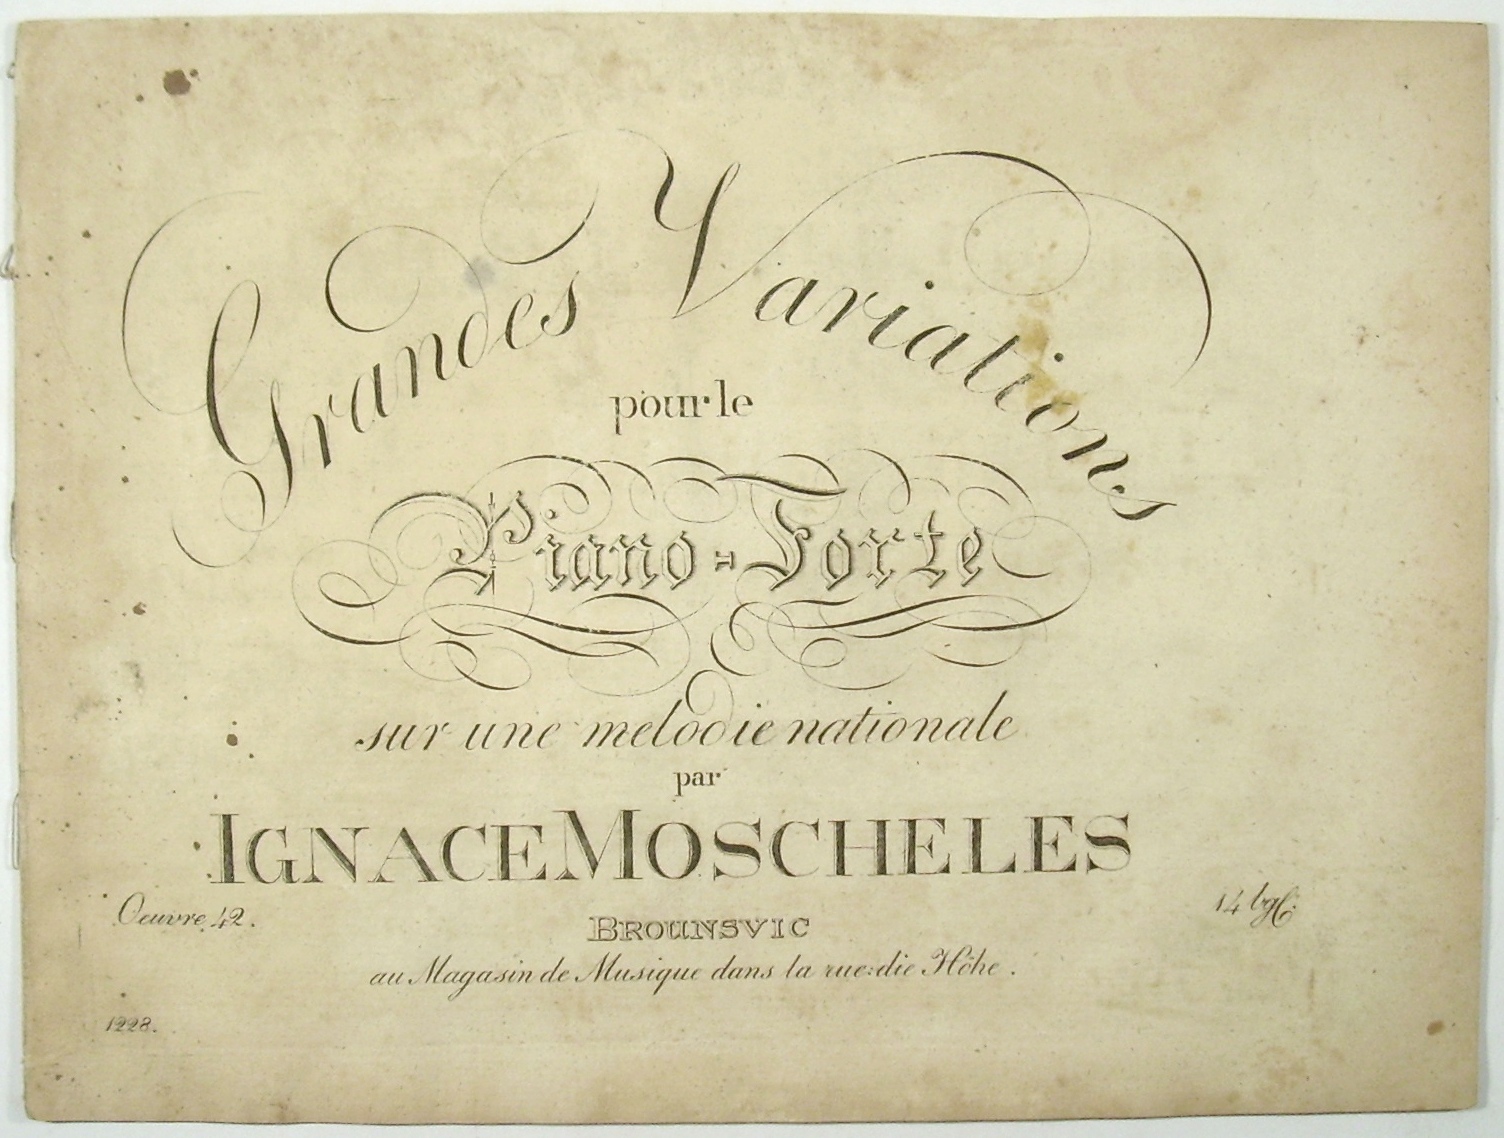 Grandes Variations
pour le
Piano=Forte
sur une melodie nationale
par
IGNACE MOSCHELES
Oeuvre 42.
14 bgl.
BROUNSVIC
au Magasin de Musique dans la rue: die Höhe.
1228.